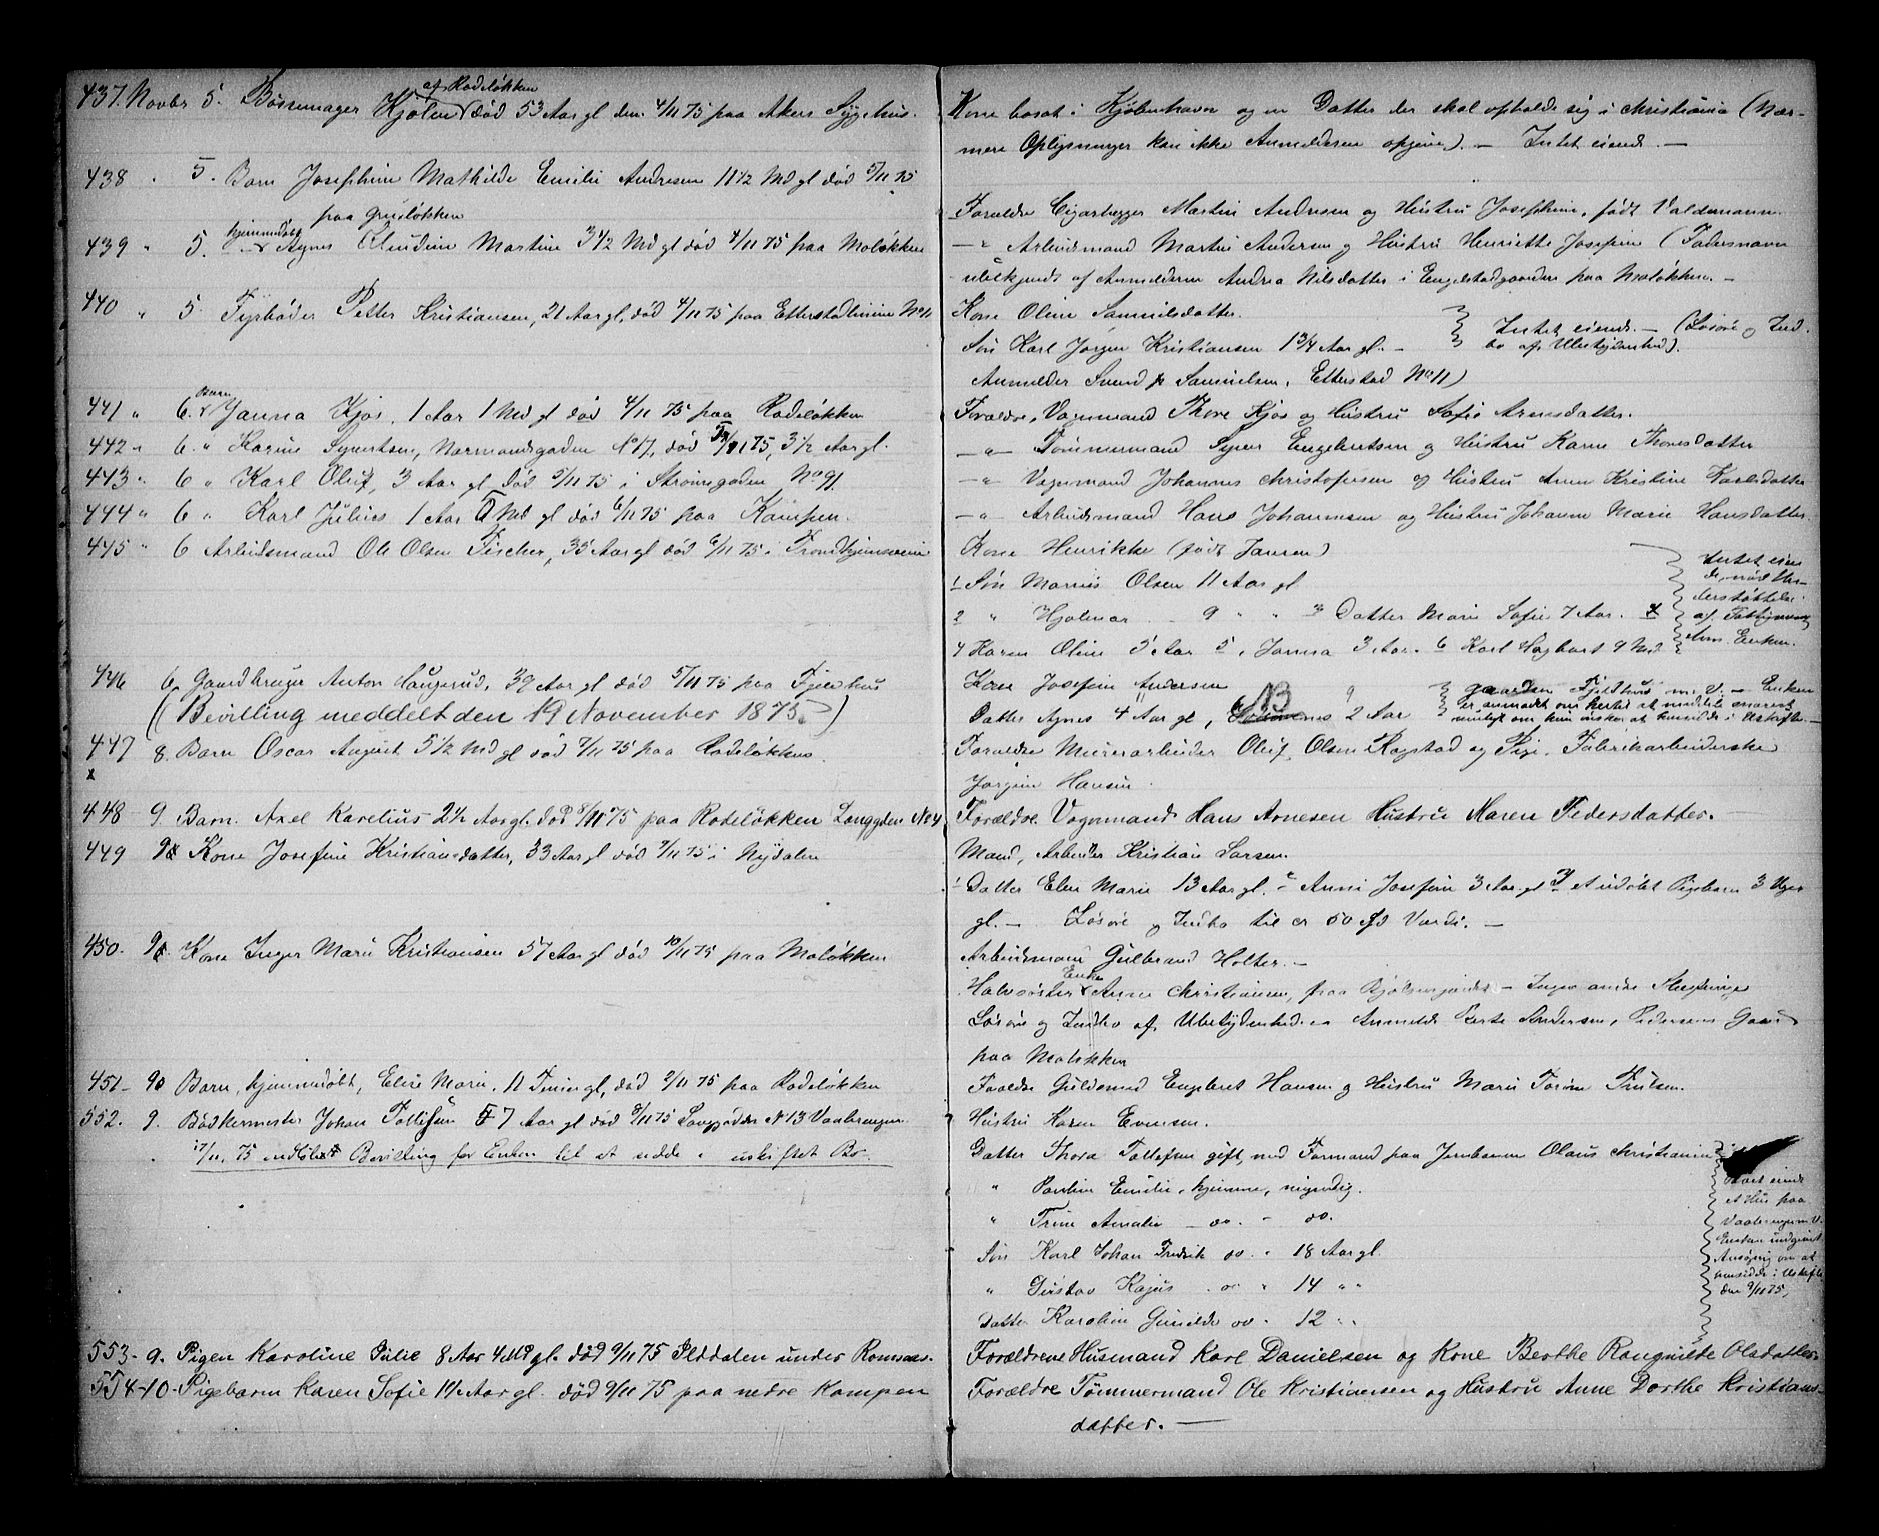 437. Novbr 5. Bøssemager Kjølen af Rodeløkken død 53 Aar gl den 4/11 75 paa Akers Sygehus. Kone bosat i Kjøbenhavn og en Datter der skal opholde sig i Christiania (Nær-
mere Oplysninger kan ikke Anmelderen opgive). — Intet eiende. —
438 " 5. Barn Josephine Mathilde Emilie Andresen 11 1/2 Md gl død 5/11 75
paa Grünløkken Forældre Cigarlægger Martin Andresen og Hustru Josephine, født Valdemann
439 " 5. hjemmedøbt Agnes Claudine Martine 3 1/2 Md gl død 4/11 75 paa Moløkken —"— Arbeidsmand Martin Andersen og Hustru Henriette Josefine (Fadersnavn
ubekjendt af Anmelderen Andrea Nilsdatter i Engelstadgaarden paa Moløkken. —
440 " 5. Fyrbøder Petter Kristiansen, 21 Aar gl, død 4/11 75 paa Etterstadlinien No 11 Kone Oline Samuelsdatter.
Søn Karl Jørgen Kristiansen 1 3/4 Aar gl. — Intet eiende. — (Løsøre og Ind-
bo af Ubetydenhed).
Anmelder Svend Samuelsen, Etterstad No 11)
441 " 6. Barn Janna Kjos, 1 Aar 1 Md gl død 4/11 75 paa Rodeløkken Forældre, Vognmand Thore Kjos og Hustru Sofie Arnesdatter.
442 " 6. " Karine Syvertsen, Normandsgaden No 17, død 5/11 75, 3 1/2 Aar gl. —"— Tømmermand Syver Engebretsen og Hustru Karen Thoresdatter
443 " 6 " Karl Oluf, 3 Aar gl død 5/11 75 i Strømsgaden No 91. —"— Vognmand Johannes Christophersen og Hustru Anne Kristine Karlsdatter
444 " 6 " Karl Julius 1 Aar Md gl død 6/11 75 paa Kampen. —"— Arbeidsmand Hans Johannesen og Hustru Johanne Marie Hansdatter
445 " 6 Arbeidsmand Ole Olsen Fischer, 35 Aar gl død 6/11 75 i Trondhjemsveien Kone Henrikke (født Jansen)
1 Søn Marius Olsen 11 Aar gl
2 " Hjalmar 9 " " 3 Datter Marie Sofie 7 Aar.
4 Karen Oline 5 Aar 5, Janna 3 Aar. 6 Karl Hagbart 9 Md
Intet eien-
de, nød Un-
derstøttelse
af Fattigvæsenet
Anm. Enken.
446 6. Gaardbruger Anton Haugerud, 39 Aar gl død 5/11 75 paa Fjeldhus Kone Josefine Andersen
(Bevilling meddelt den 19 November 1875.) Datter Agnes 4 Aar gl, 2 Aar
gaarden Fjeldhus m. v. — Enken
er anmodet om hertil at meddele snarest
muligt om hun ønsker at hensidde i Uskifte —
447 8. Barn Oscar August 5 1/2 Md gl død 7/11 75 paa Rodeløkken. Forældre Murerarbeider Oluf Olsen Ragstad og Pige, Fabrikarbeiderske
x Jørgine Hansen.
448 9. Barn. Axel Karelius 2 1/2 Aar gl. død 8/11 75 paa Rodeløkken Langgden No 4 Forældre. Vognmand Hans Arnesen Hustru Maren Pedersdatter. —
449 9 Kone Josefine Kristiansdatter, 33 Aar gl død 7/11 75 i Nydalen Mand, Arbeider Kristian Larsen.
1 Datter Elen Marie 13 Aar gl. 2 Anni Josefine 3 Aar gl 3 et udøbt Pigebarn 3 Uger
gl. — Løsøre og Indbo til ca 50 Værdi. —
450. 9. Kone Inger Marie Kristiansen 57 Aar gl død 10/11 75 paa Moløkken Arbeidsmand Gulbrand Holter. —
Halvsøster Enke Anne Christiansen, paa Bjølsengaardet — Ingen andre Slegtninge
Løsøre og Indbo af Ubetydenhed. — Anmeldt Berte Andersen, Pedersens Gaard
paa Moløkken
451 — 9 Barn, hjemmedøbt, Elise Marie, 11 Timer gl, død 9/11 75 paa Rodeløkken Forældre Guldsmed Engebret Hansen og Hustru Marie Torine Trulsen.
552. 9. Bødkermester Johan Tollefsen 57 Aar gl død 8/11 75 Langgaden No 13 Vaalerengen. Hustru Karen Evensen.
17/11. 75 meddelt Bevilling for Enken til at sidde i uskiftet Bo. Datter Thora Tollefsen gift, med Formand paa Jernbanen Olaus Christiansen
" Pauline Emilie, hjemme, myndig.
" Trine Amalie — do. — do.
Søn Karl Johan Fredrik do. " 18 Aar gl.
" Gustav Kajus . do " 14 " "
Datter Karoline Gunilde do — 12 " "
Boet eiende
et Hus paa
Vaalerengen.
Enken indgivet
Ansøgning om at
hensidde i Uskifte
den 9/11 75,
553 - 9. Pigen Karoline Julie 8 Aar 4 Md gl. død 9/11 75 under Romsaas. Forældrene Husmand Karl Danielsen og Kone Berthe Rangnilde Olsdatter
554 - 10 - Pigebarn Karen Sofie 1 1/2 Aar gl. død 9/11 75 paa nedre Kampen Forældre Tømmermand Ole Kristiansen og Hustru Anne Dorthe Kristians-
datter. —